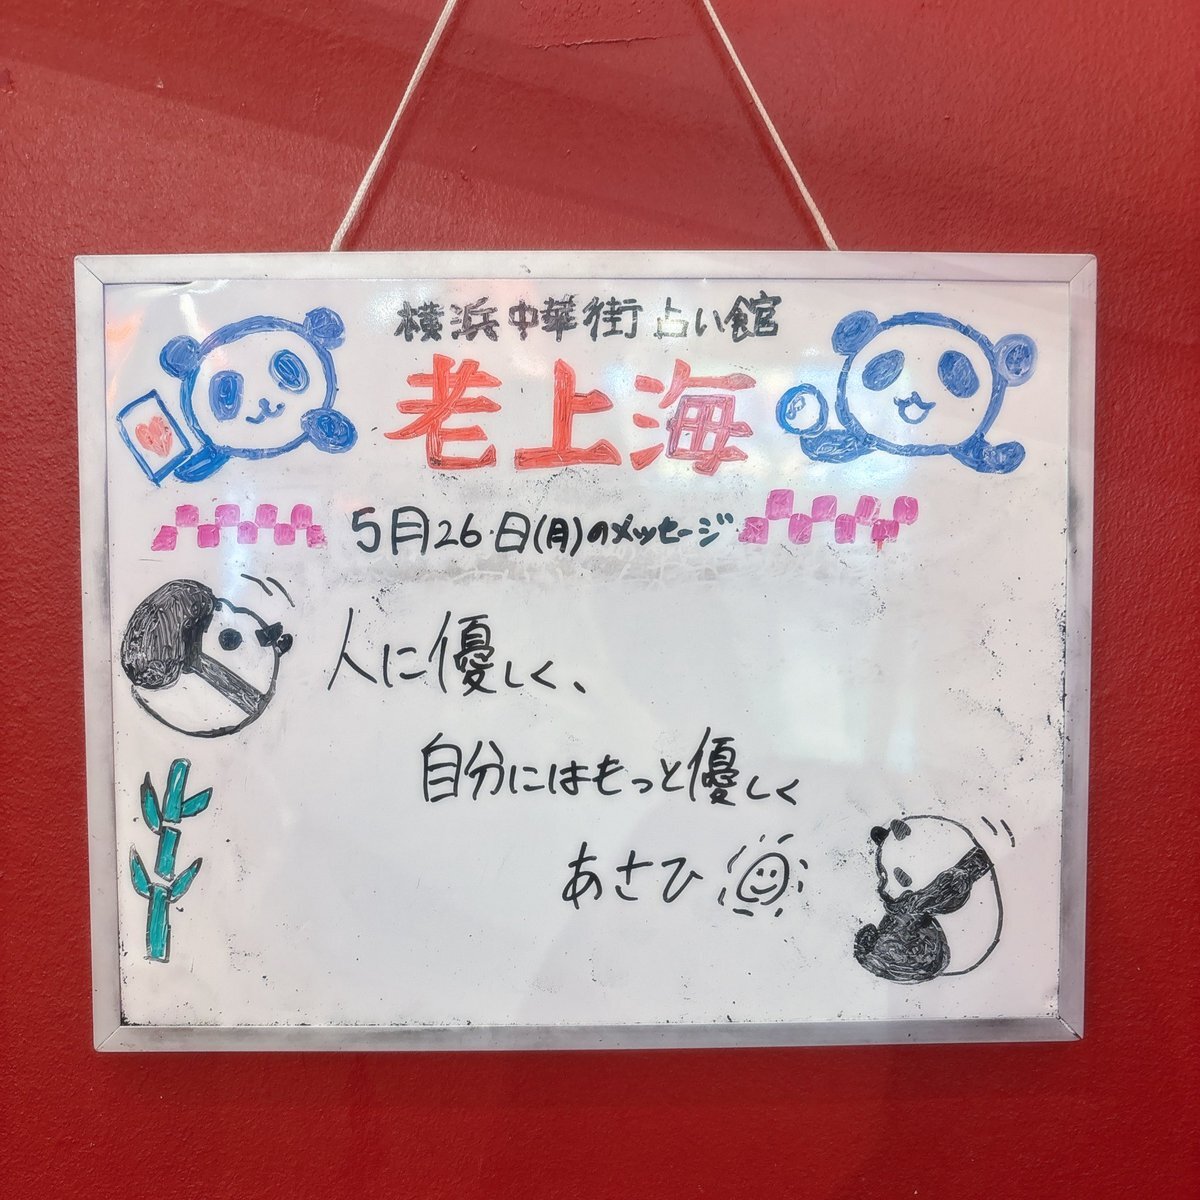 横浜中華街 占い館
老上海
5月26日(月)のメッセージ
人に優しく、
自分にはもっと優しく
あさひ